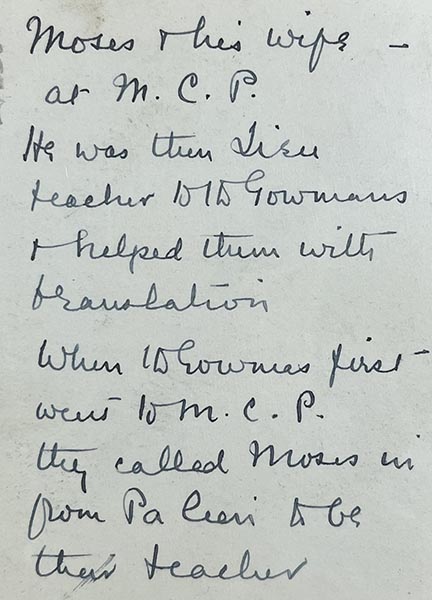 Moses & his wife –
at M. C. P.
He was then Lisu
teacher to the Gowmans
& helped them with
translation
When the Gowmas first
went to M. C. P.
they called Moses in
from Pa to be
their teacher